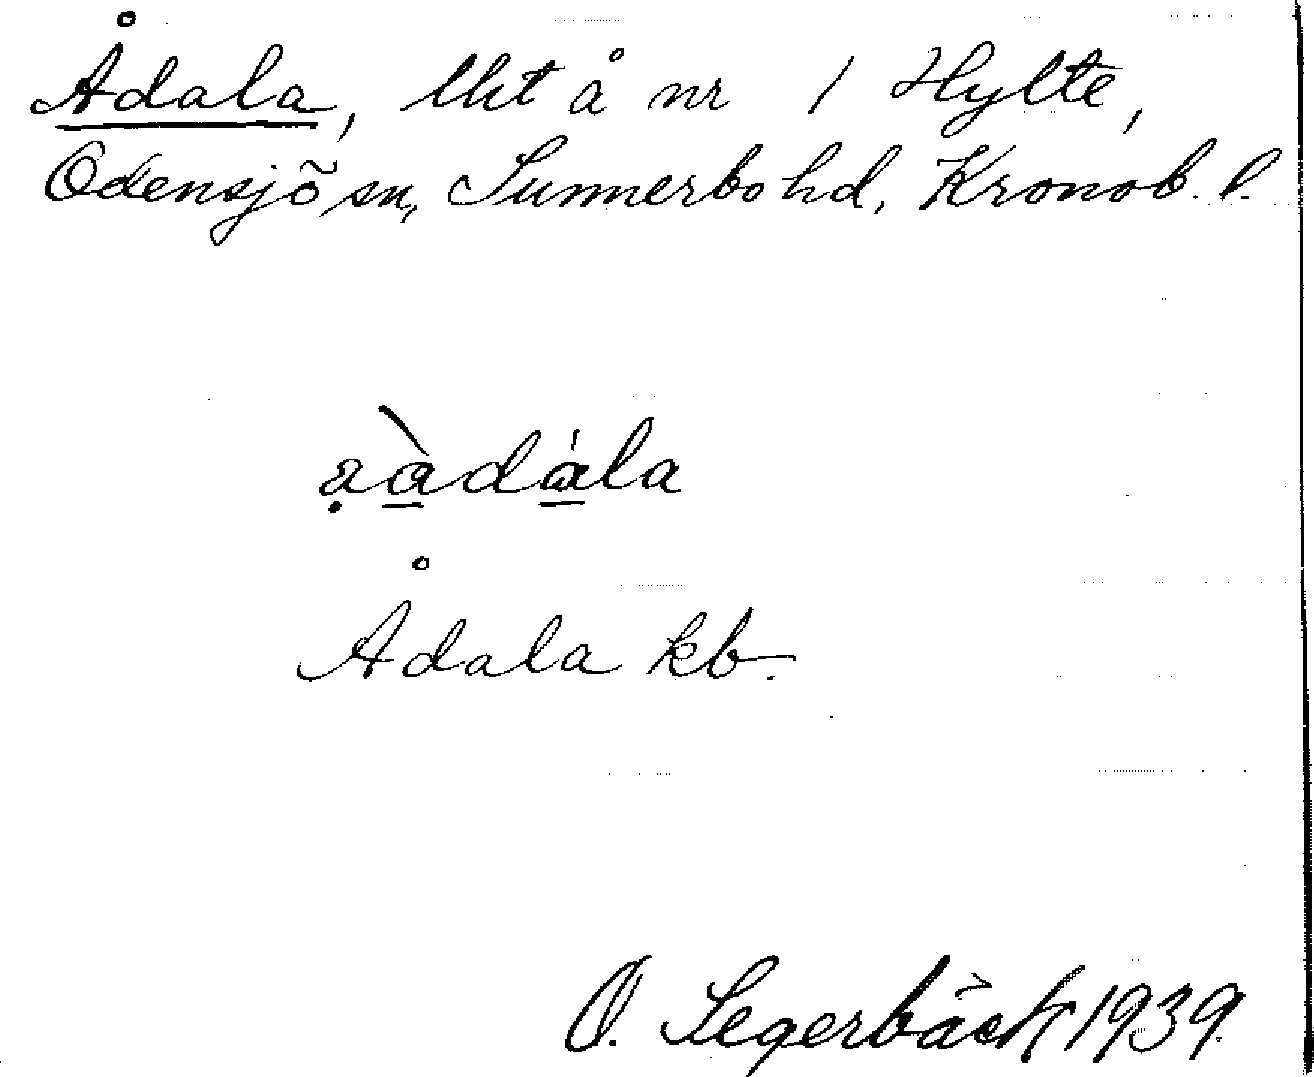 Ådala, lht å nr 1 Hylte,
Odensjö sn, Sunnerbo hd, Kronob. l.
ạà̱da̱̍la
Ådala kb.
O. Segerbäck 1939.